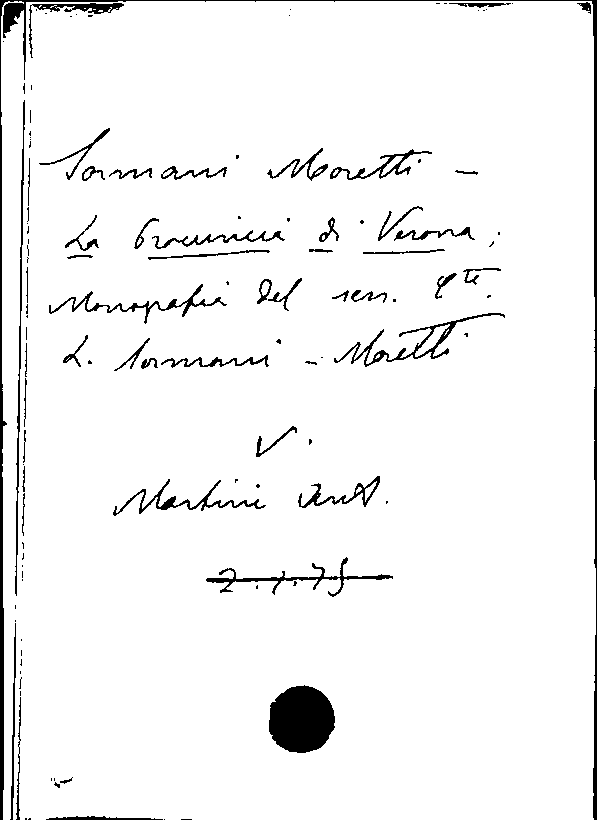 Sormani Moretti -
La Provincia di Verona;
Monografia del sen. Cte.
L. Sormani - Moretti
V.
Martini
2.7.75